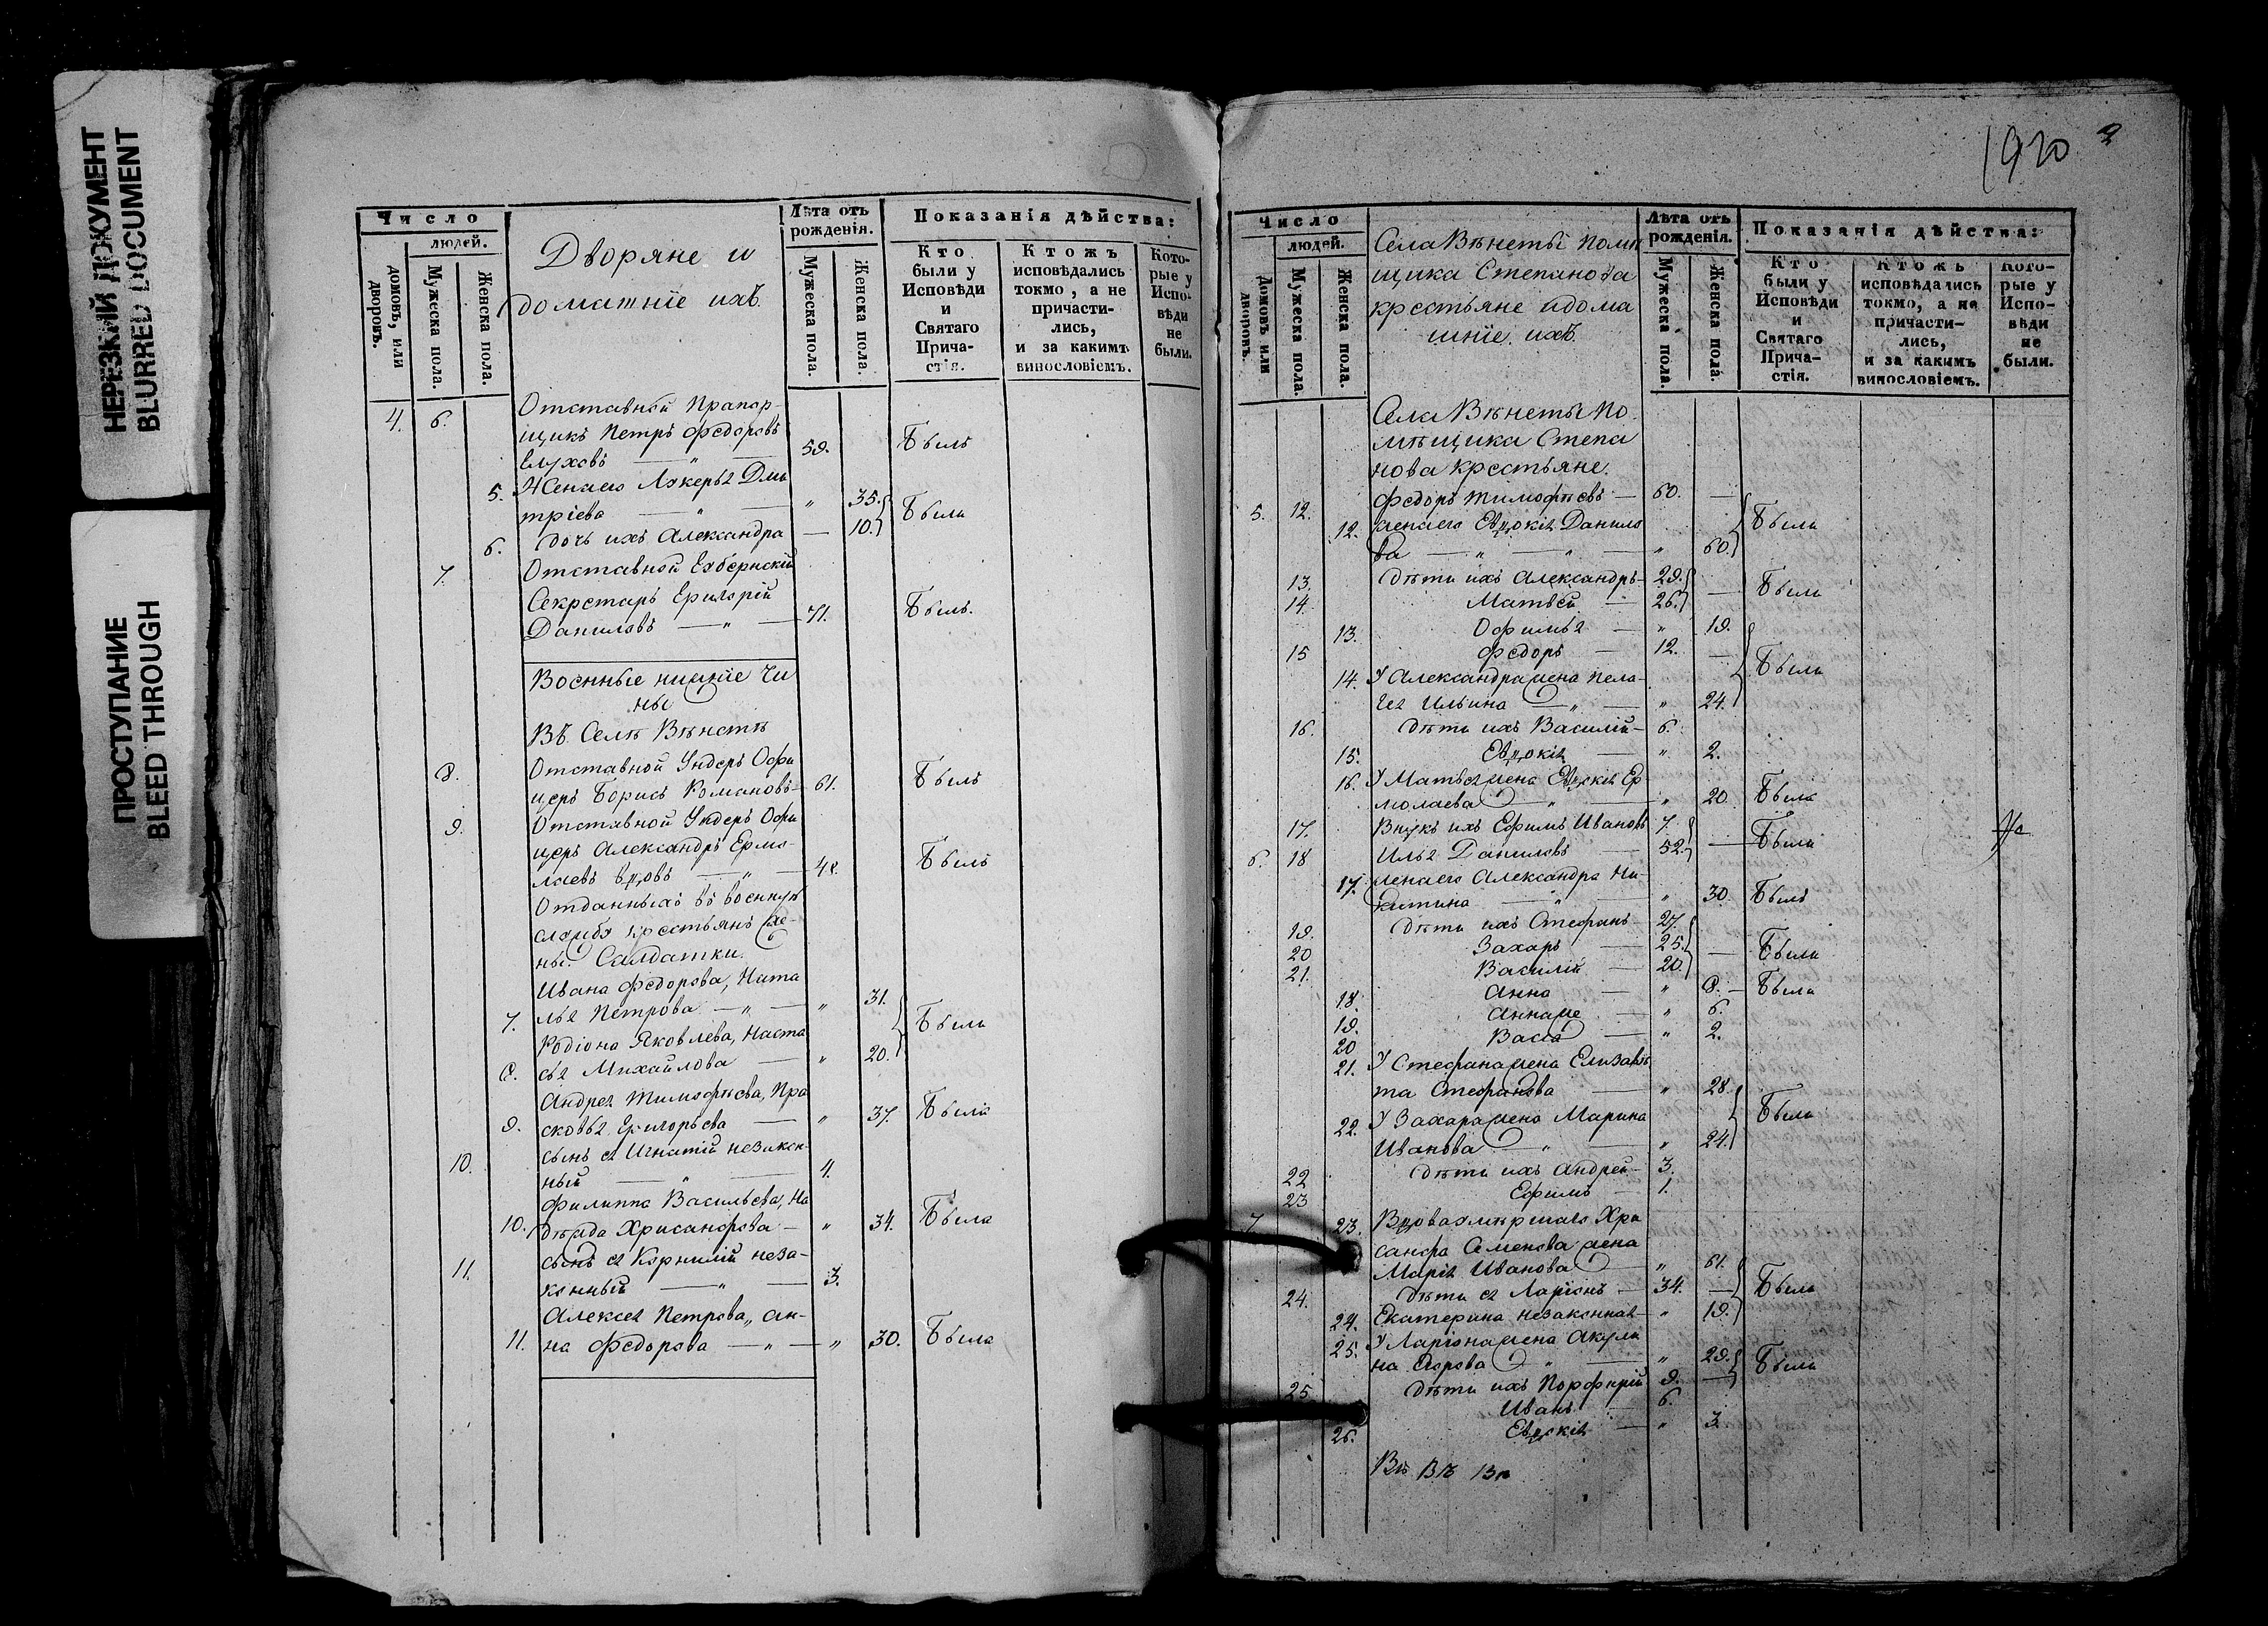 НЕРЕЗКИЙ ДОКУМЕНТ
BLURRED DOCUMENT
ПРОСТУПАНИЕ
BLEED THROUGH
Число
людей.
домовъ, или дворовъ.
Мужеска пола.
Женска пола.
Дворяне и
домашніе ихъ
Лѣта отъ рожденія.
Мужеска пола.
Женска пола.
Показанія дѣйства:
Кто были у Исповѣди и Святаго Прича-стія.
Ктожъ исповѣдались токмо, а не причасти-лись, и за какимъ винословіемъ.
Кото-рые у Испо-вѣди не были.
4. 6. Отставной Прапор-
щикъ Петръ Федоровъ
— " — 59. Былъ
5. Жена его Лукерья Дми
тріева — " — " 35.
6. дочь ихъ Александра — 10. Были
7. Отставной Губернскій
Секретарь Григорій
Даниловъ — " — 71. Былъ.
Военные нижніе Чи
ны
Въ Селѣ Вѣнетѣ
8. Отставной Ундеръ Офи
церъ Борисъ Романовъ — 61. Былъ
9. Отставной Ундеръ Офи
церъ Александръ Ермо-
лаевъ вдовъ — " — 48. Былъ
Отданныхъ въ военную
службу крестьянъ же-
ны Салдатки.
Ивана Федорова, Ната
7. лья Петрова — " — " 31.
Родіона Яковлева, Наста Были
8. сья Михайлова — " 20.
Андрея Тимофѣева, Пра
9. сковья Григорьева — " 37. Была
10. сынъ ея Игнатій незакон-
ный — " — 4.
Филиппа Васильева, На
10. дѣжда Хрисанфова — " 34. Была
11. сынъ ея Корнилій неза-
конный — " — 3.
Алексея Петрова, Ан-
11. на Федорова — " — " 30. Была
1920
Число
людей.
Домовъ или дворовъ.
Мужеска пола.
Женска пола.
Села Вѣнеты помѣ
щика Степанова
крестьяне и дома
шніе ихъ
Лѣта отъ рожденія.
Мужеска пола.
Женска пола.
Показанія дѣйства:
Кто были у Исповѣди и Святаго Прича-стія.
Ктожъ исповѣдались токмо, а не причасти-лись, и за какимъ винословіемъ.
Кото-рые у Испо-вѣди не были.
Села Вѣнеты По-
мѣщика Степа
нова крестьяне.
5. 12. Федоръ Тимофѣевъ — 60. —
12. жена его Евдокія Данило Были
ва — " — " — " 60.
13. дѣти ихъ Александръ — 29.
14. Матвей — 26. — Были
13. Офимья — " 19.
15 Федоръ — 12. —
14. У Александра жена Пела- Были
гея Ильина — " — " 24.
16. дѣти ихъ Василій — 6.
15. Евдокія — " 2.
16. У Матвея жена Евдокія Ер
молаева — " — " 20. Была
17. Внукъ ихъ Ефимъ Ивановъ 7.
6. 18 Илья Даниловъ — 52. — Были
17. жена его Александра Ни-
китина — " — " 30. Былъ
19. дѣти ихъ Стефанъ 27.
20 Захаръ — 25. — Были
21. Василій — 20.
18. Анна — " 8. — Была
19. Анна же — " 6.
20 Васса — " 2.
21. У Стефана жена Елизавѣ
та Стефанова — " 28.
22. У Захара жена Марина Были
Иванова — " — " 24.
22 дѣти ихъ Андрей — 3.
23 Ефимъ — 1.
7. 23. Вдова умѣршаго Хри
санфа Семенова жена
Марія Иванова — " 61.
24. дѣти ея Ларіонъ — 34. — Были
24. Екатерина незаконная — " 19.
25. У Ларіона жена Акули
на Егорова — " — " 29.
25 дѣти ихъ Порфирій 9. — Были
Иванъ — 6.
26. Евдокія — " 3.
Вѣ Вѣ Вѣ